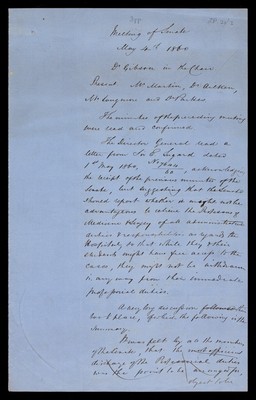 Meeting of Senate
May 4th 1860
Dr Gibson in the Chair
Present Mr Martin, Dr Aitken,
Mr Longmore and Dr Parkes
The minutes of the preceding meeting
were read and confirmed
The Director General read a
letter from Sir E. Lugard dated
1st May 1860, acknowledging
the receipt of the previous minutes of the
Senate, but suggesting that the Senate
should report whether it might not be
advantageous to relieve the Professors of
Medicine & Surgery of all administrative
duties & responsibilities as regards the
Hospitals, so that while they & their
students might have free access to the
cases, they might not be withdrawn
in any way from their immediate
professorial duties.
A very long discussion followed
took place, of which the following is the
summary.
It was felt by all the members
of the Senate, that the most efficient
discharge of the Professorial duties
was the point to be